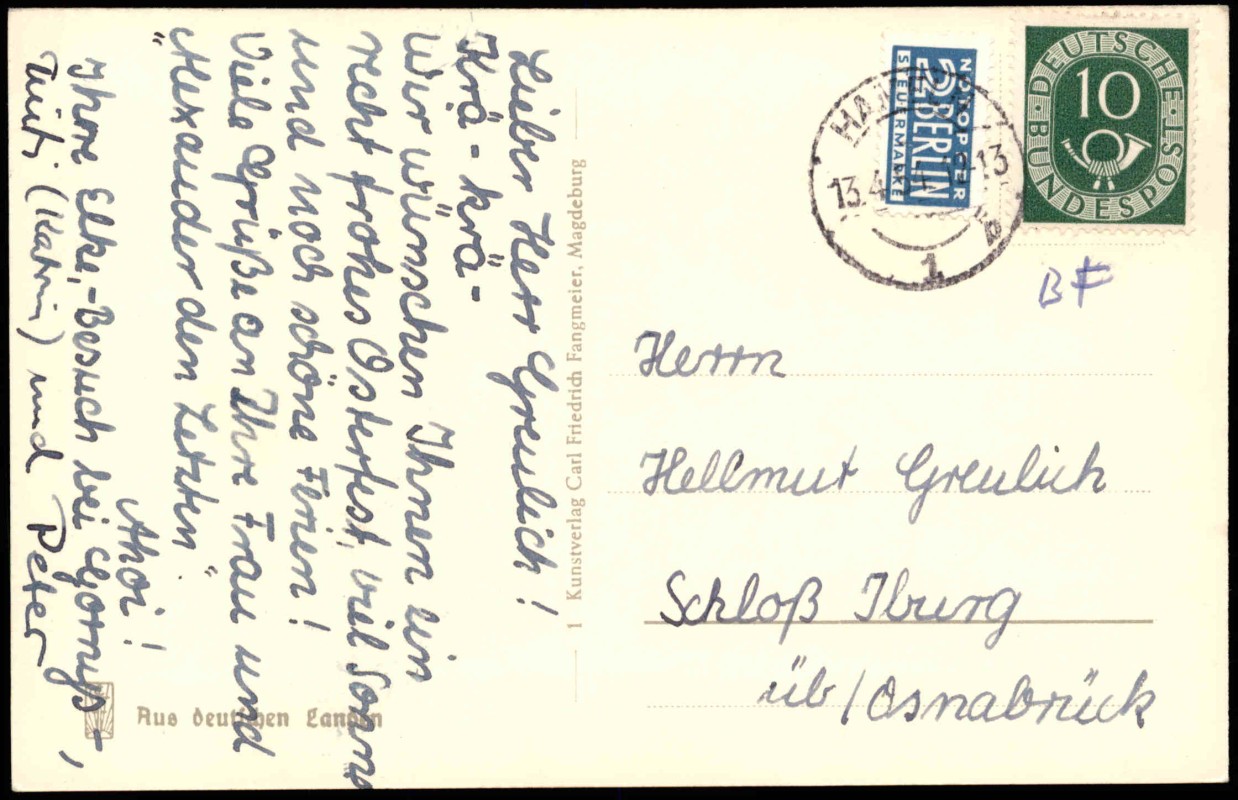 Lieber Herr Greulich!
Krä-krä-
Wir wünschen Ihnen ein
recht frohes Osterfest, viel Sonne
und noch schöne Ferien!
Viele Grüße an Ihre Frau und
"Alexander den Letzten".
Ahoi!
Ihre Elke,-Besuch bei Gornigs-,
(Katrin) und Peter
1 Kunstverlag Carl Friedrich Fangmeier, Magdeburg
Aus deutschen Landen
NOTOPFER
2 BERLIN
STEUERMARKE
DEUTSCHE BUNDESPOST
10
13.4.54 12-13
1
b
BF
Herrn
Hellmut Greulich
Schloß Iburg
üb/Osnabrück